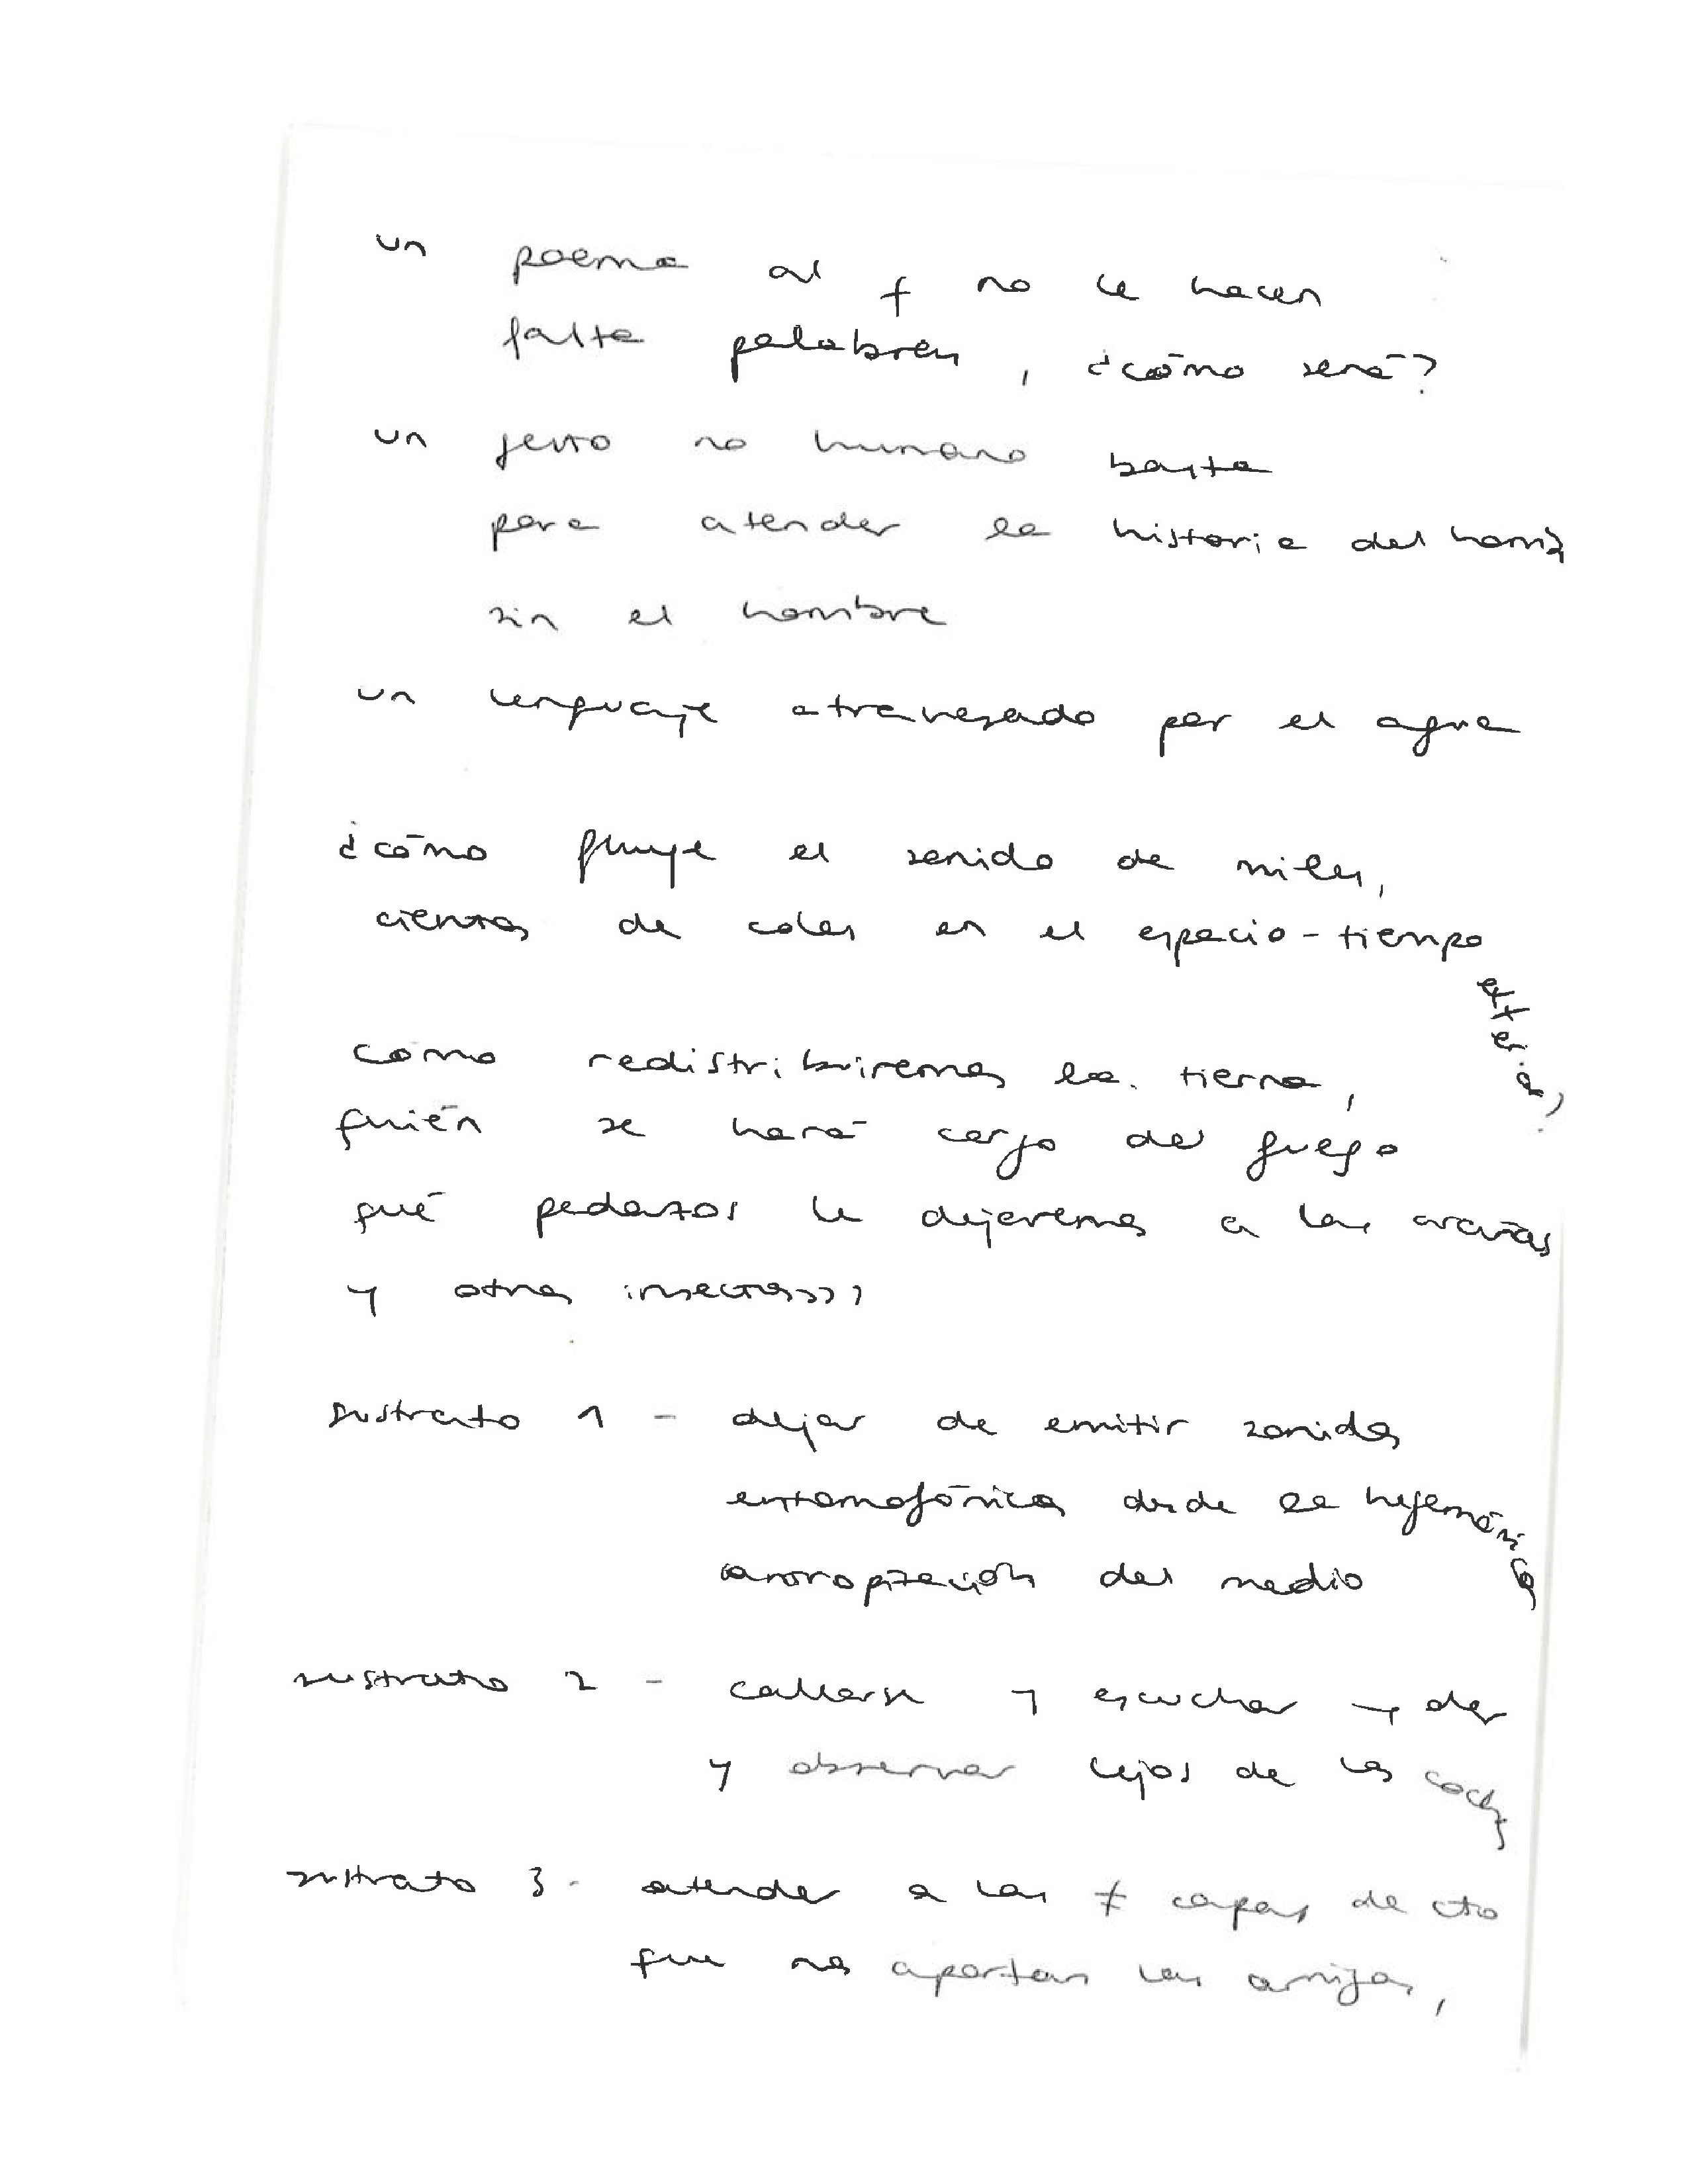 un poema al q no le hacen
falta palabras, ¿cómo será?
un gesto no humano basta
para atender la historia del hombre
sin el hombre
un lenguaje atravesado por el agua
¿cómo fluye el sonido de miles,
cientos de coles en el espacio-tiempo
exterior,
como redistribuiremos la tierra,
quién se hará cargo del fuego
qué pedazos le dejaremos a las arañas
y otros insectos???
sustrato 1 - dejar de emitir sonidos
entomofónicos desde la hegemónica
apropiación del medio
sustrato 2 - callarse y escuchar y oler
y observar lejos de los coches
sustrato 3 - atender a las ≠ capas de cto
que nos aportan las amigas,